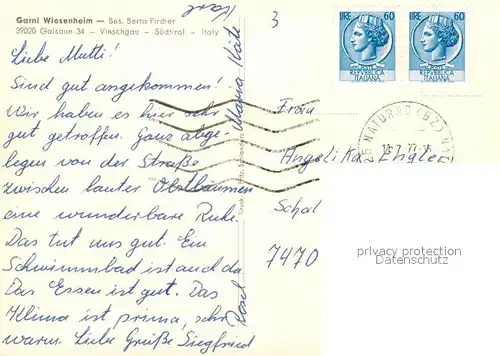 Garni Wiesenheim — Bes. Berta Pircher
39020 Galsaun 34 — Vinschgau — Südtirol — Italy
Liebe Mutti!
Sind gut angekommen!
Wir haben es hier sehr
gut getroffen. Ganz abge-
legen von der Straße
zwischen lauter Obstbäumen
eine wunderbare Ruhe.
Das tut uns gut. Ein
Schwimmbad ist auch da
Das Essen ist gut. Das
Klima ist prima, sehr
warm. Liebe Grüße Siegfried
Rosel
Maria Käte
Karl
3
LIRE 60
POSTE
REPUBBLICA
ITALIANA
LIRE 60
POSTE
REPUBBLICA
ITALIANA
NATURNO (BZ)
Frau
Angelika Engler
Schal
7470
privacy protection
Datenschutz